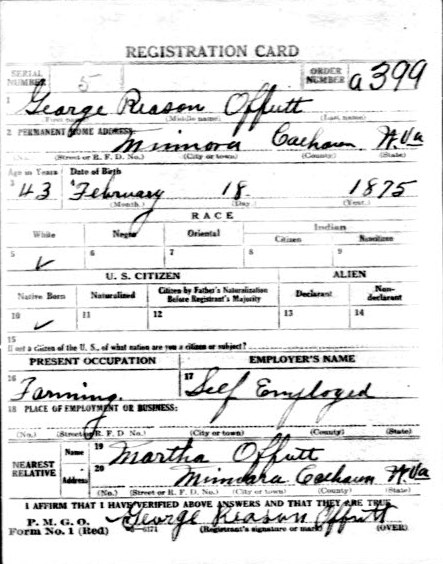 REGISTRATION CARD
SERIAL NUMBER 5 ORDER NUMBER a399
1 George Reason Offutt
(First name) (Middle name) (Last name)
2 PERMANENT HOME ADDRESS:
Minnora Calhoun W.Va
(No.) (Street or R. F. D. No.) (City or town) (County) (State)
Age in Years Date of Birth
3 43 4 February 18 1875
(Month.) (Day.) (Year.)
RACE
White Negro Oriental Indian
Citizen Noncitizen
5 ✓ 6 7 8 9
U. S. CITIZEN ALIEN
Native Born Naturalized Citizen by Father's Naturalization Before Registrant's Majority Declarant Non-declarant
10 ✓ 11 12 13 14
15
If not a citizen of the U. S., of what nation are you a citizen or subject?
PRESENT OCCUPATION EMPLOYER'S NAME
16 Farming. 17 Self Employed
18 PLACE OF EMPLOYMENT OR BUSINESS:
(No.) (Street or R. F. D. No.) (City or town) (County) (State)
NEAREST RELATIVE Name 19 Martha Offutt
Address 20 Minnora Calhoun W.Va
(No.) (Street or R. F. D. No.) (City or town) (County) (State)
I AFFIRM THAT I HAVE VERIFIED ABOVE ANSWERS AND THAT THEY ARE TRUE
P. M. G. O. George Reason Offutt
Form No. 1 (Red) (Registrant's signature or mark) (OVER)